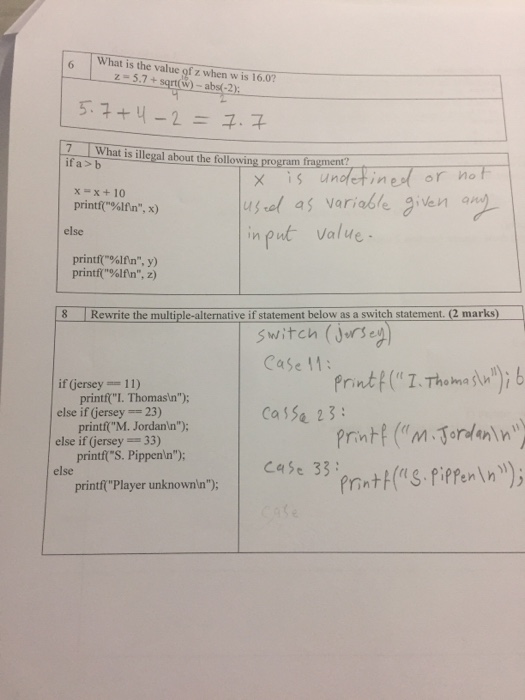 6 What is the value of z when w is 16.0?
16
z = 5.7 + sqrt(w) – abs(-2);
4 2
5.7+4-2 = 7.7
7 What is illegal about the following program fragment?
if a > b
x = x + 10
printf("%lf\n", x)
else
printf("%lf\n", y)
printf("%lf\n", z)
x is undefined or not
used as variable given any
input value.
8 Rewrite the multiple-alternative if statement below as a switch statement. (2 marks)
if (jersey == 11)
printf("I. Thomas\n");
else if (jersey == 23)
printf("M. Jordan\n");
else if (jersey == 33)
printf("S. Pippen\n");
else
printf("Player unknown\n");
switch (jersey)
Case 11:
printf("I. Thomas\n"); b
Casse 23:
printf("M. Jordan\n")
Case 33:
printf("S. Pippen\n");
case